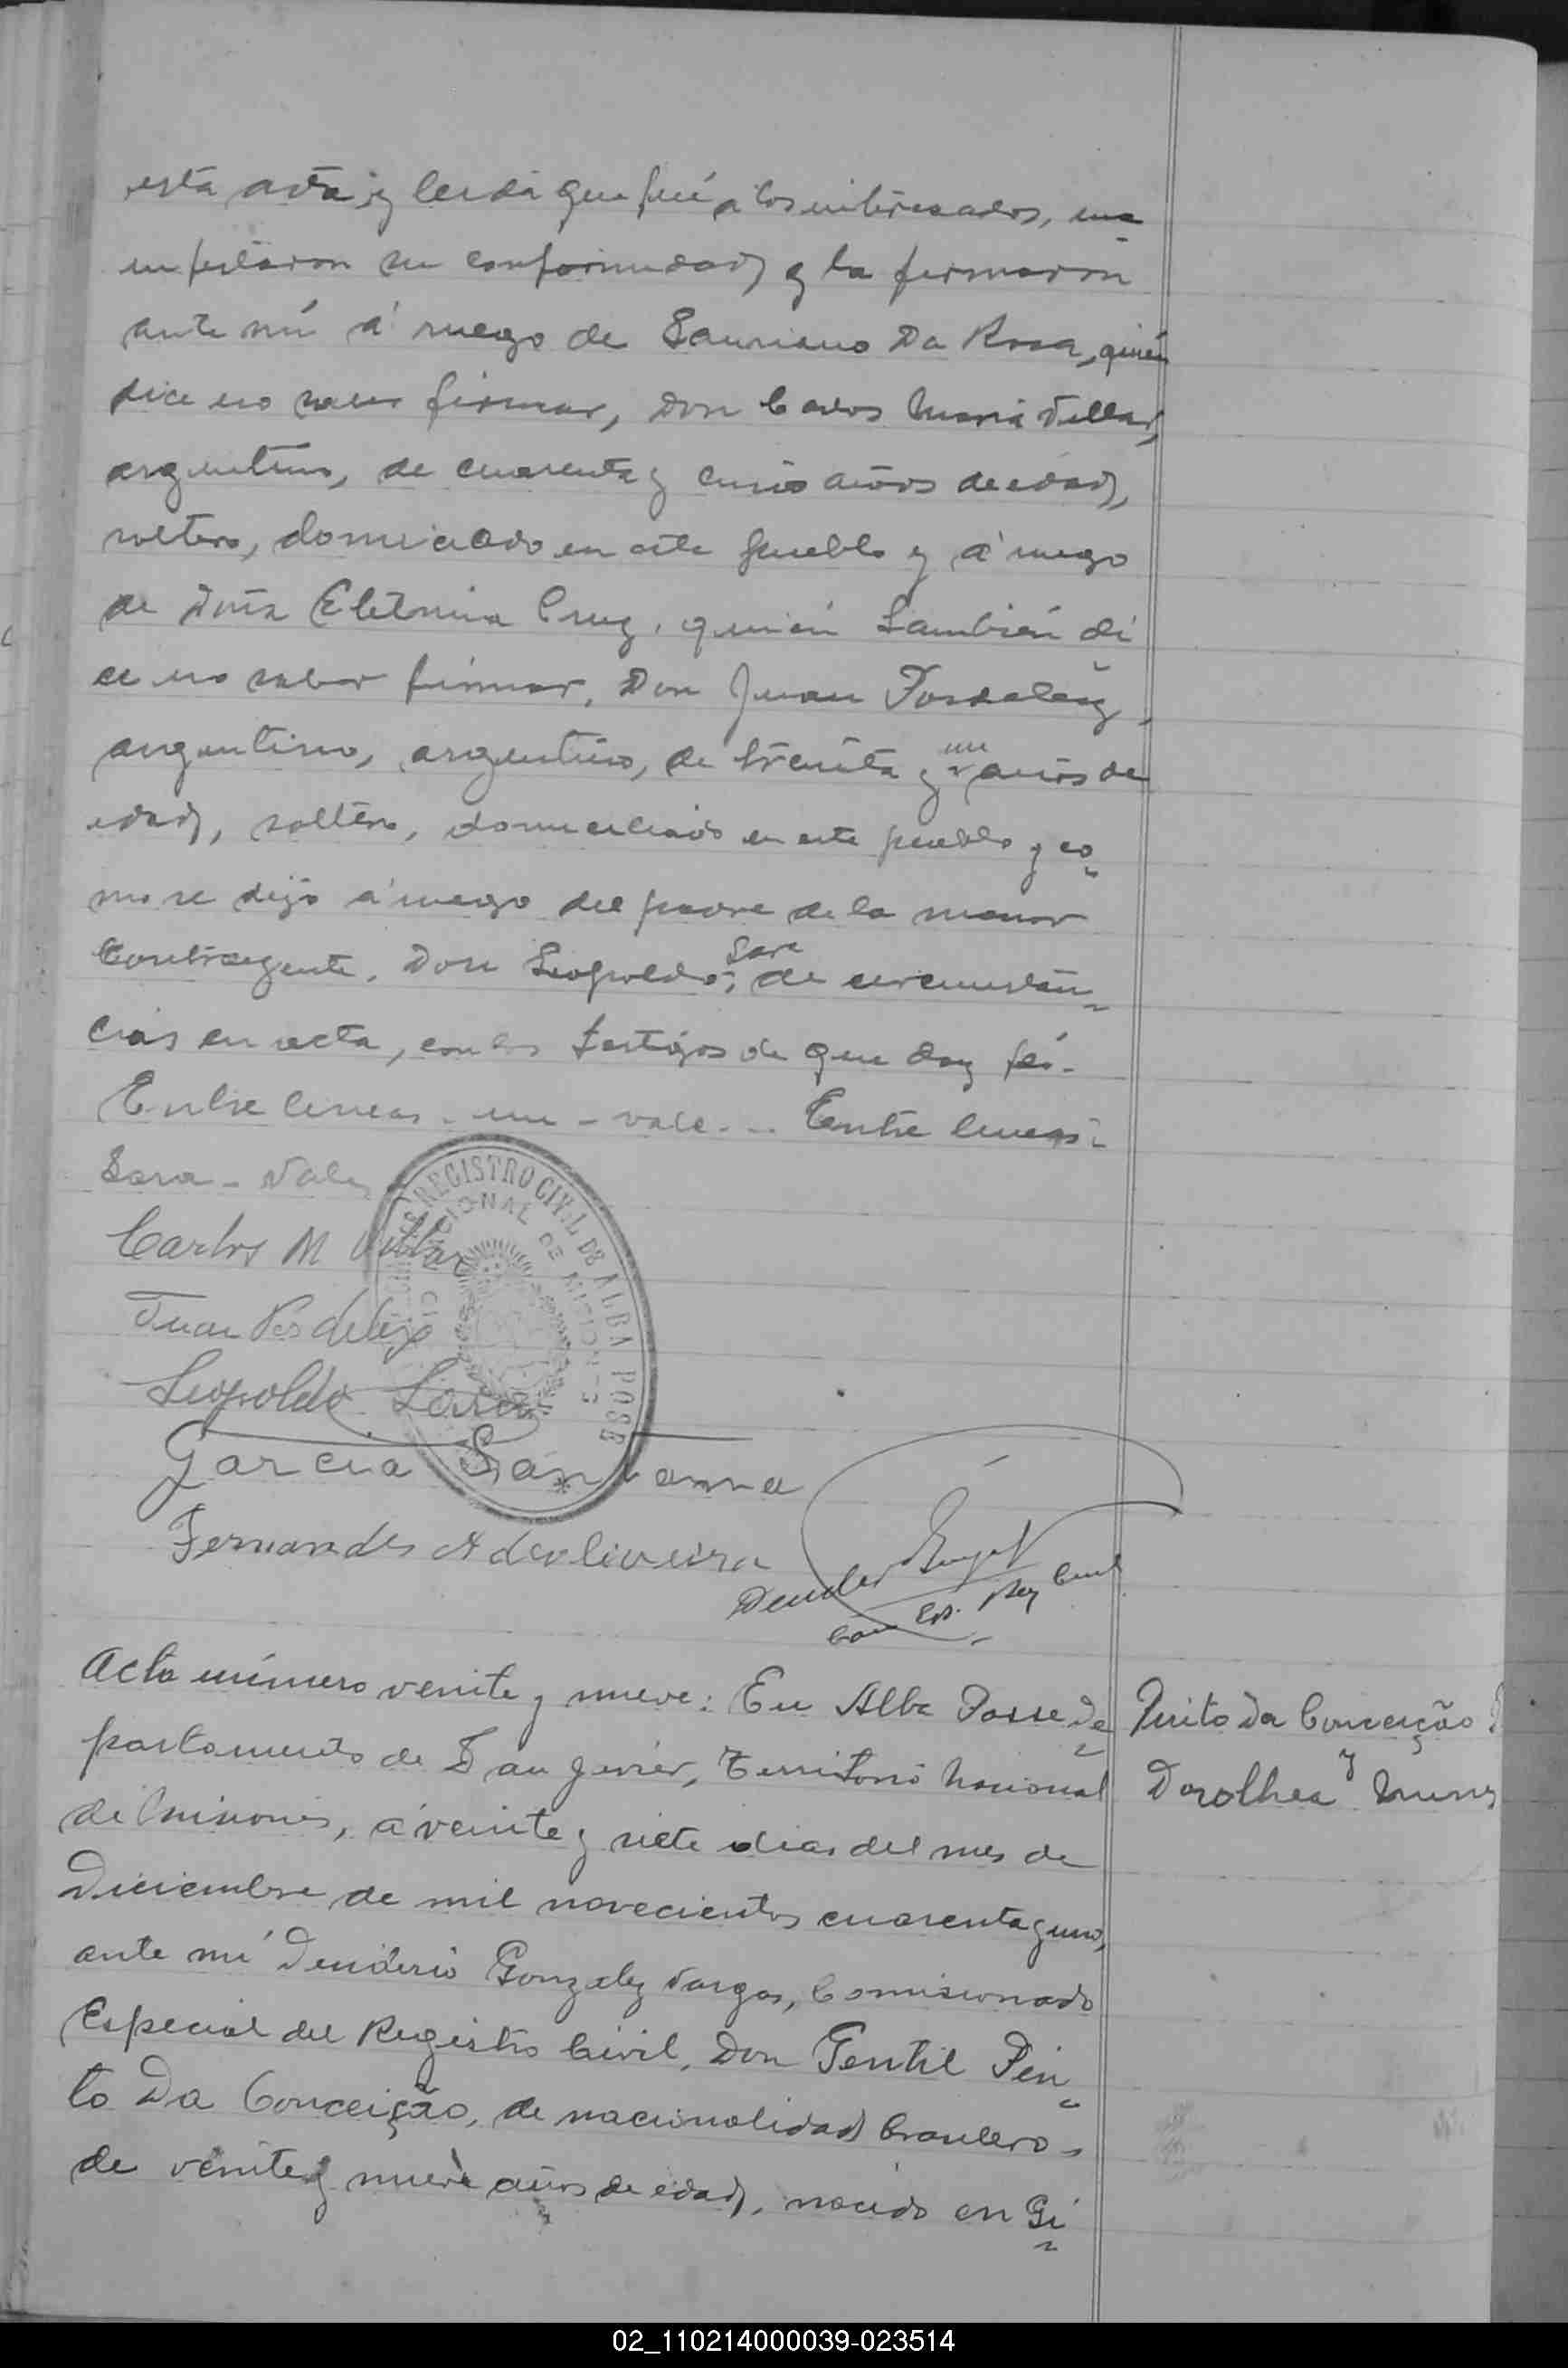 esta acta y leida que fué a los interesados, ma-
nifestaron su conformidad y la firmaron
ante mí á ruego de Lauriano Da Rosa, quién
dice no saber firmar, Don Carlos María Villar,
argentino, de cuarenta y cinco años de edad,
soltero, domiciado en este pueblo y á ruego
de Doña Eletnira Cruz, quién también di
ce no saber firmar, Don Juan
argentino, argentino, de treinta y un años de
edad, soltero, domiciliado en este pueblo y co-
mo se dijo á ruego del padre de la menor
contrayente, Don Leopoldo, Sara de circunstan-
cias en acta, con los testigos de que doy fé.-
Entre lineas - un - vale. - Entre lineas:-
Sara - Vale
Carlos M Villar
Juan
Leopoldo Sara
Garcia Santanna
Fernandes A deoliveira
REGISTRO CIVIL DE ALBA POSSE
NACIONAL DE MISIONES
Com. Esp. Reg Civil
Acta número veinte y nueve: En Alba Posse De-
partamento de San Javier, Territorio Nacional
de Misiones, á veinte y siete dias del mes de
Diciembre de mil novecientos cuarenta y uno,
ante mí Desiderio Gonzalez Vargas, Comisionado
Especial del Registro Civil, Don Gentil Pin-
to Da Conceição, de nacionalidad brasilero -
de veinte y nueve años de edad, nacido en Gi-
Pinto Da Conceição
y
Dorothea Nunes
02_110214000039-023514